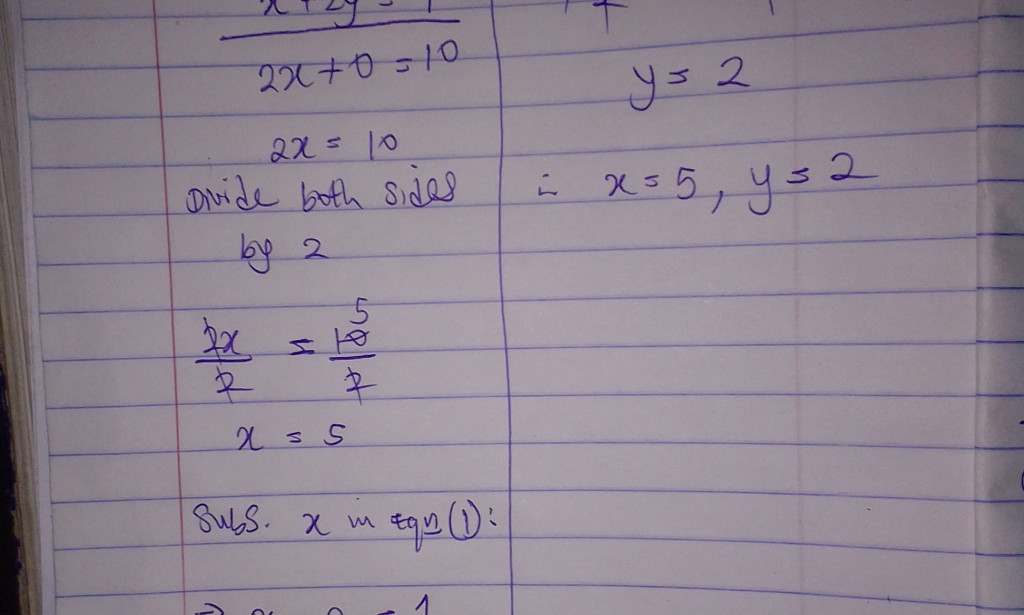 2x + 0 = 10
2x = 10
Divide both sides
by 2
2x/2 = 10/2
5
x = 5
Subs. x in eqn (1):
y = 2
∴ x = 5, y = 2